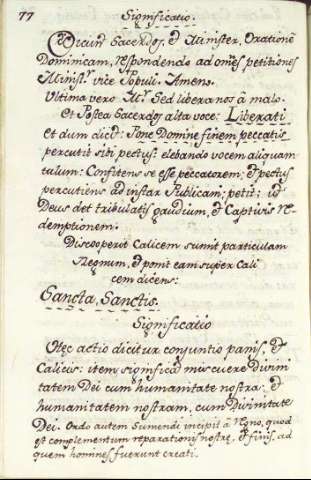 77
Significatio.
Dicunt Sacerdos, et Minister, Orationē
Dominicam, respondendo ad omēs petitiones
Minist.ʳ vice Populi. Amens.
Ultima vero M.ʳ Sed libera nos â malo.
Et Postea Sacerdos alta voce: Liberati
Et dum dicit: Pone Domine finem peccatis
percutit sibi pectus: elebando vocem aliquam
tulum: Confitens se esse peccatorem; et pectus
percutiens ad instar Publicani; petit: ut
Deus det tribulatis gaudium, et Captivis re-
demptionem.
Discooperit Calicem sumit particulam
Regnum, et ponit eam super Cali
cem dicens:
Sancta, Sanctis.
Significatio
Hec actio dicitur conjuntio panis, et
Calicis: item significat miscuere Divini
tatem Dei cum humanitate nostra: et
humanitatem nostram, cum Divinitate
Dei. Ordo autem Sumendi incipit â Regno, quod
est complementum reparationis nostre, et finis, ad
quem homines fuerunt creati.